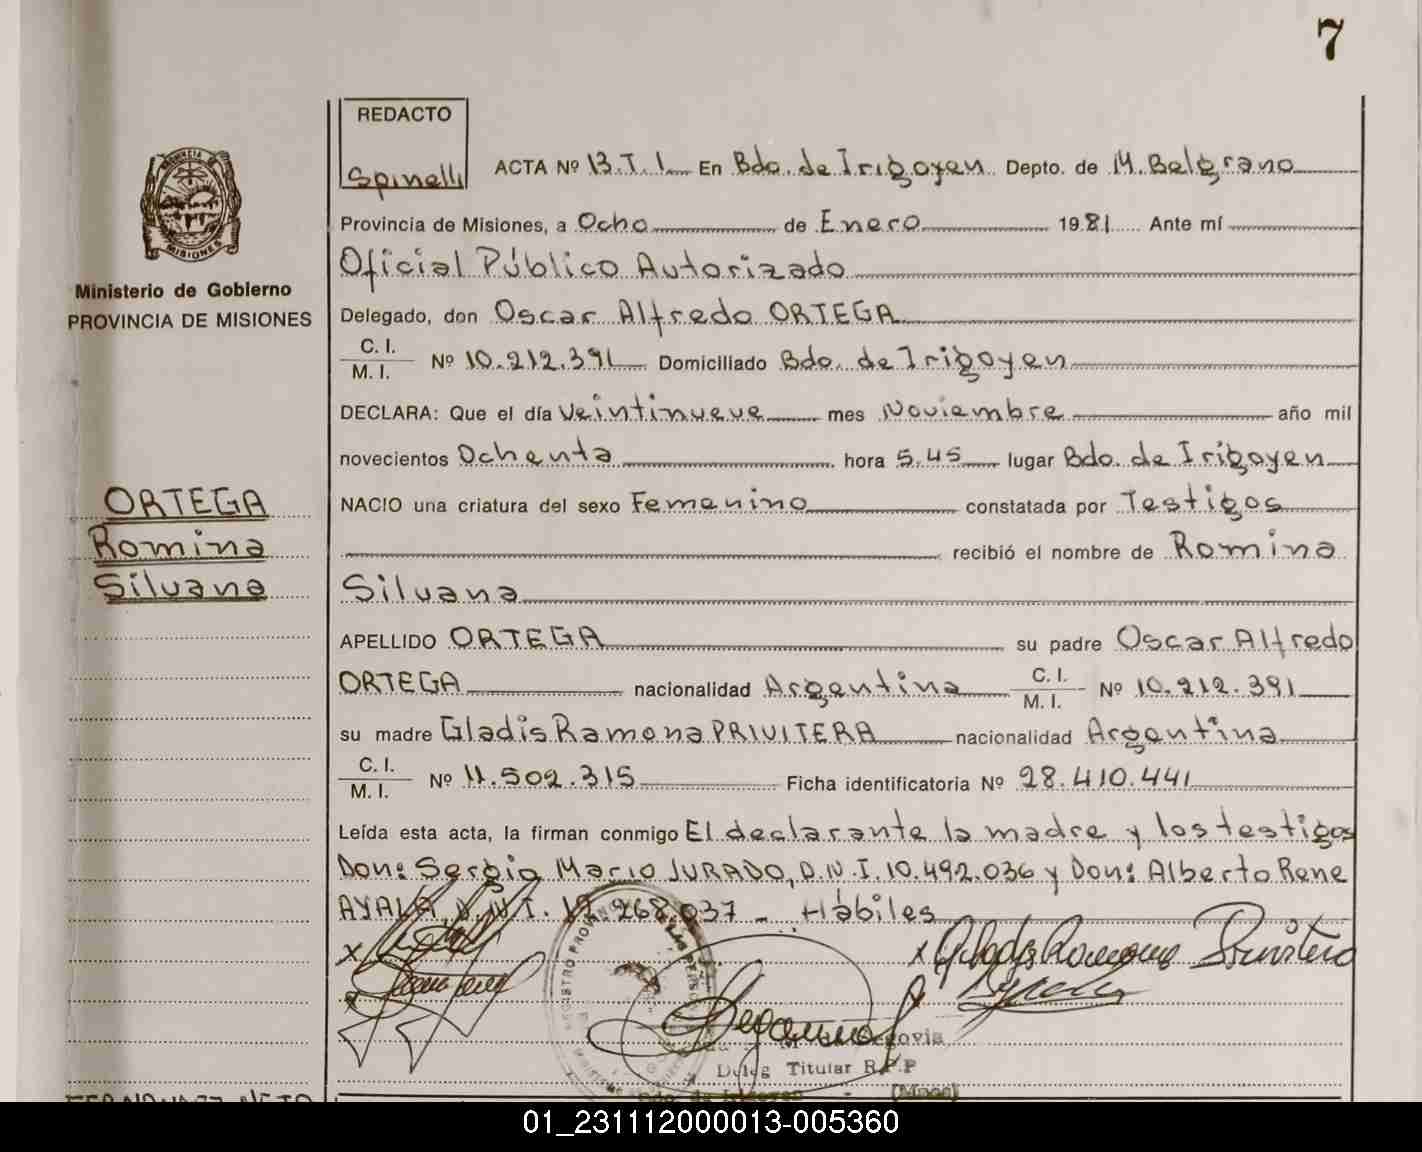 7
REDACTO
Spinelli
ACTA Nº 13.T.1. En Bdo. de Irigoyen Depto. de M. Belgrano
Provincia de Misiones, a Ocho de Enero 1981 Ante mí
Oficial Público Autorizado
Delegado, don Oscar Alfredo ORTEGA
C. I.
M. I. Nº 10.212.391 Domiciliado Bdo. de Irigoyen
DECLARA: Que el día Veintinueve mes Noviembre año mil
novecientos Ochenta hora 5.45 lugar Bdo. de Irigoyen
NACIO una criatura del sexo Femenino constatada por Testigos
recibió el nombre de Romina
Silvana
APELLIDO ORTEGA su padre Oscar Alfredo
ORTEGA nacionalidad Argentina C. I. M. I. Nº 10.212.391
su madre Gladis Ramona PRIVITERA nacionalidad Argentina
C. I.
M. I. Nº 11.502.315 Ficha identificatoria Nº 28.410.441
Leída esta acta, la firman conmigo El declarante la madre y los testigos
Don: Sergio Mario JURADO, D.N.I. 10.492.036 y Don: Alberto Rene
AYALA, D.N.I. 268.037 - Hábiles
x x Gladys Ramona Privitera
Segovia
Deleg Titular R.P.P
Bdo de Irigoyen - (Mnes)
PROVINCIA DE
MISIONES
Ministerio de Gobierno
PROVINCIA DE MISIONES
ORTEGA
Romina
Silvana
01_231112000013-005360